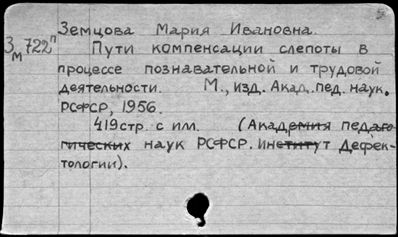 Земцова Мария Ивановна.
З м 722 п Пути компенсации слепоты в
процессе познавательной и трудовой
деятельности. М., изд. Акад. пед. наук.
РСФСР, 1956.
419стр. с ил. (Академия педаго
гических наук РСФСР. Институт Дефек-
тологии).